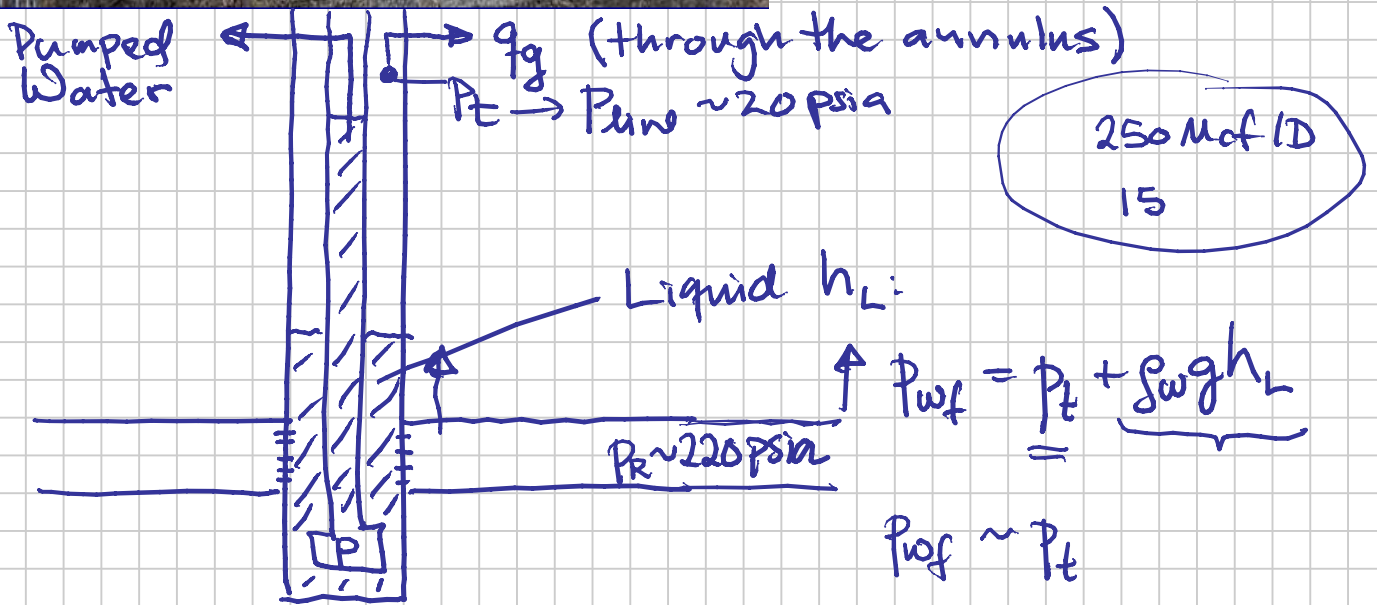 Pumped
Water
qg (through the annulus)
Pt → Pline ~20 psia
250 Mcf/D
15
Liquid hL:
Pwf = Pt + ρw g hL
PR~220 psia
P
Pwf ~ Pt